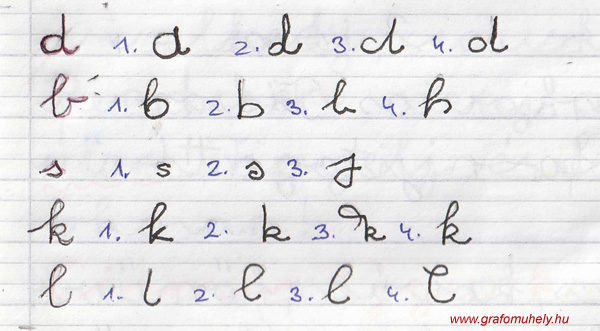 d 1. a 2. d 3. d 4. d
b 1. b 2. b 3. h 4. h
s 1. s 2. s 3. J
k 1. k 2. k 3. k 4. k
l 1. l 2. l 3. l 4. l
www.grafomuhely.hu